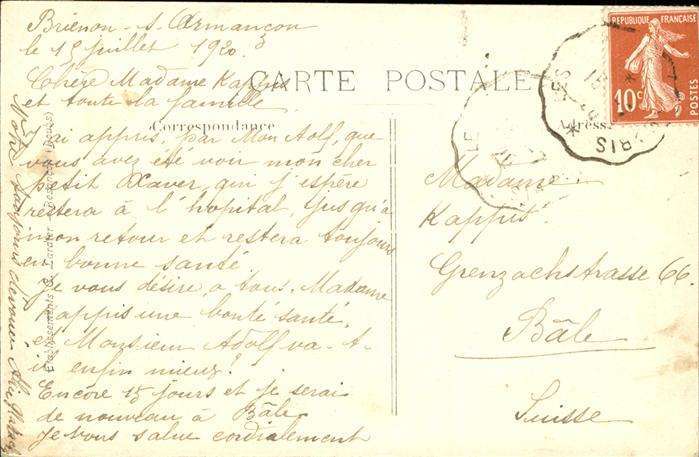 Brienon-s. Armançon
le 15 juillet 1920
Chère Madame Kappis
et toute la famille
J'ai appris, par Mon Adolf, que
vous avez été voir mon cher
petit Xaver, qui j'espère
restera à l'hôpital, jusqu'à
mon retour et restera toujours
en bonne santé.
Je vous désire, à tous, Madame
Kappis une bonté santé,
et Monsieur Adolf va-t-
il enfin mieux?
Encore 15 jours et je serai
de nouveau à Bâle
Je vous salue cordialement
Votre toujours dévouée
CARTE POSTALE
Correspondance
Adresse
Madame
Kappis
Grenzachstrasse 66.
Bâle
Suisse
RÉPUBLIQUE FRANÇAISE
10c
POSTES
PARIS
Établissements C. Lardier - Besançon (Doubs)